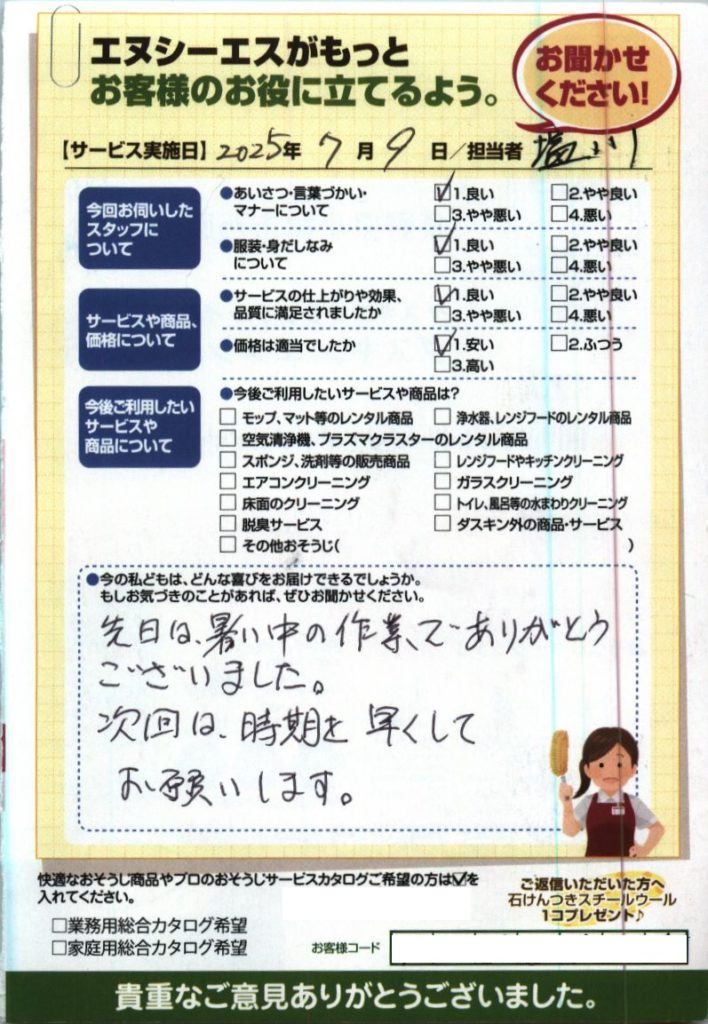 エヌシーエスがもっと
お客様のお役に立てるよう。
お聞かせ
ください!
【サービス実施日】2025年 7月 9日/担当者 塩川
今回お伺いした
スタッフに
ついて
●あいさつ・言葉づかい・
マナーについて
☑1.良い □2.やや良い
□3.やや悪い □4.悪い
●服装・身だしなみ
について
☑1.良い □2.やや良い
□3.やや悪い □4.悪い
サービスや商品、
価格について
●サービスの仕上がりや効果、
品質に満足されましたか
☑1.良い □2.やや良い
□3.やや悪い □4.悪い
●価格は適当でしたか
☑1.安い □2.ふつう
□3.高い
今後ご利用したい
サービスや
商品について
●今後ご利用したいサービスや商品は?
□ モップ、マット等のレンタル商品 □ 浄水器、レンジフードのレンタル商品
□ 空気清浄機、プラズマクラスターのレンタル商品
□ スポンジ、洗剤等の販売商品 □ レンジフードやキッチンクリーニング
□ エアコンクリーニング □ ガラスクリーニング
□ 床面のクリーニング □ トイレ、風呂等の水まわりクリーニング
□ 脱臭サービス □ ダスキン外の商品・サービス
□ その他おそうじ( )
●今の私どもは、どんな喜びをお届けできるでしょうか。
もしお気づきのことがあれば、ぜひお聞かせください。
先日は、暑い中の作業、でありがとう
ございました。
次回は、時期を早くして
お願いします。
快適なおそうじ商品やプロのおそうじサービスカタログご希望の方は☑を
入れてください。
□業務用総合カタログ希望
□家庭用総合カタログ希望
ご返信いただいた方へ
石けんつきスチールウール
1コプレゼント♪
お客様コード
貴重なご意見ありがとうございました。